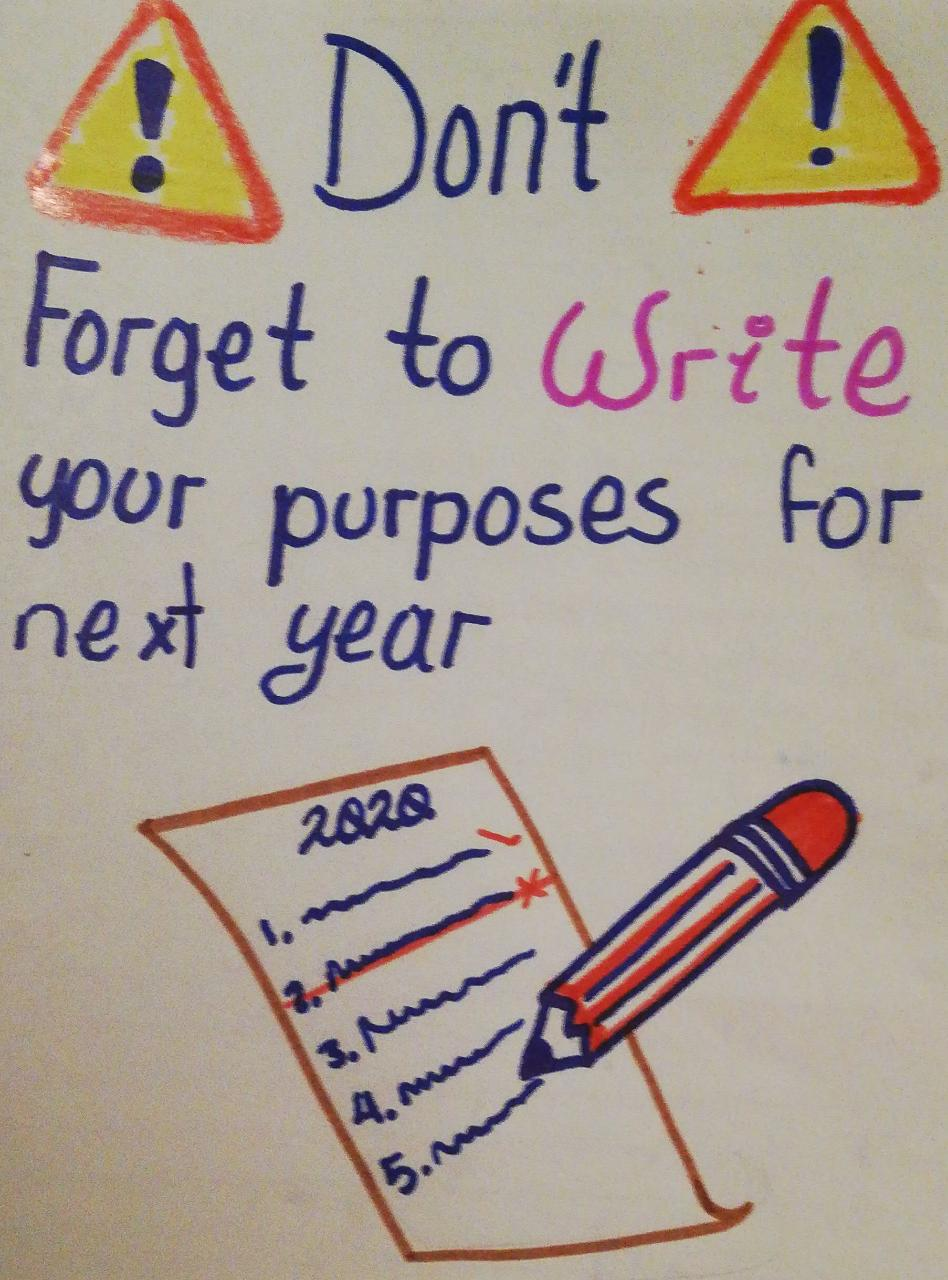 ! Don't !
Forget to Write
your purposes for
next year
2020
1.
2.
3.
4.
5.